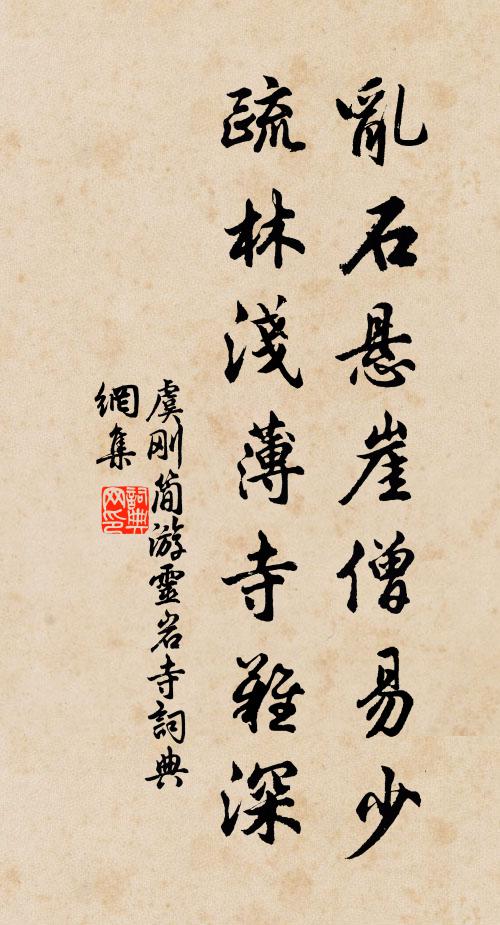 亂石悬崖僧易少
疏林淺薄寺難深
虞刚简游靈岩寺詞典
網集
詞典网印